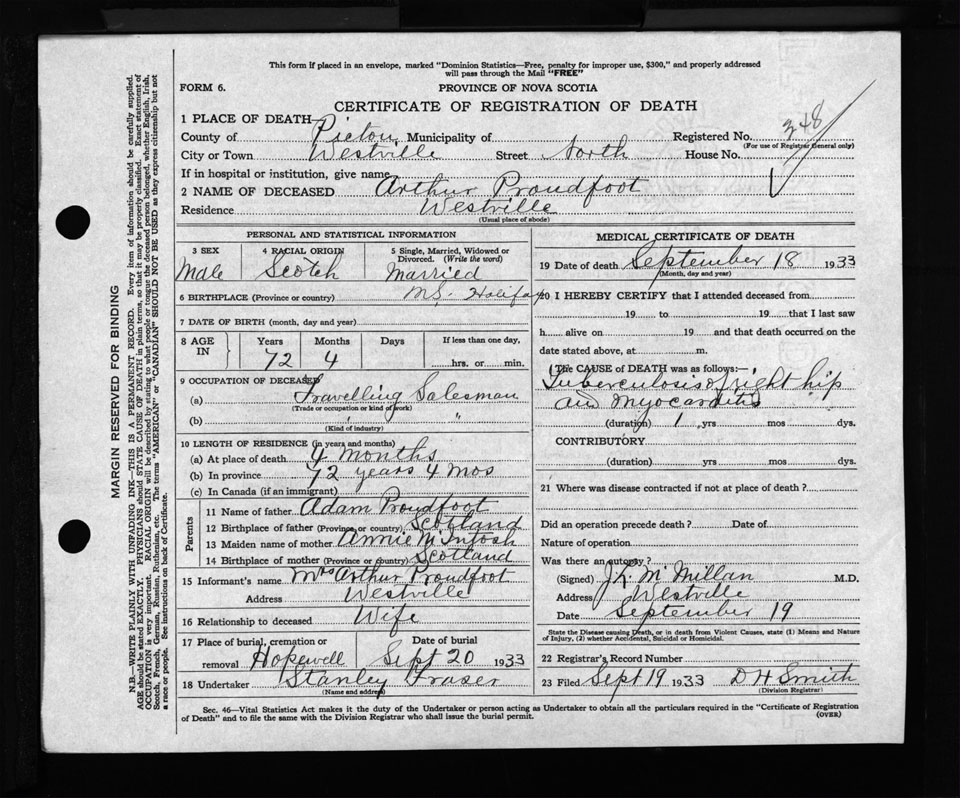 This form if placed in an envelope, marked "Dominion Statistics—Free, penalty for improper use, $300," and properly addressed
will pass through the Mail "FREE"
FORM 6. PROVINCE OF NOVA SCOTIA
CERTIFICATE OF REGISTRATION OF DEATH
1 PLACE OF DEATH
County of Pictou Municipality of Registered No. 348
(For use of Registrar General only)
City or Town Westville Street North House No.
If in hospital or institution, give name
2 NAME OF DECEASED Arthur Proudfoot
Residence Westville
(Usual place of abode)
PERSONAL AND STATISTICAL INFORMATION
3 SEX 4 RACIAL ORIGIN 5 Single, Married, Widowed or
Divorced. (Write the word)
Male Scotch Married
6 BIRTHPLACE (Province or country) Halifax
7 DATE OF BIRTH (month, day and year)
8 AGE IN Years Months Days If less than one day,
72 4 hrs. or min.
9 OCCUPATION OF DECEASED
(a) Travelling Salesman
(Trade or occupation or kind of work)
(b) " "
(Kind of industry)
10 LENGTH OF RESIDENCE (in years and months)
(a) At place of death months
(b) In province 72 years 4 mos
(c) In Canada (if an immigrant)
Parents
11 Name of father Adam Proudfoot
12 Birthplace of father (Province or country) Scotland
13 Maiden name of mother Annie McIntosh
14 Birthplace of mother (Province or country) Scotland
15 Informant's name Mrs Arthur Proudfoot
Address Westville
16 Relationship to deceased Wife
17 Place of burial, cremation or Date of burial
removal Hopewell Sept 20 1933
18 Undertaker Stanley Fraser
(Name and address)
MEDICAL CERTIFICATE OF DEATH
19 Date of death September 18 1933
(Month, day and year)
20 I HEREBY CERTIFY that I attended deceased from
19 to 19 that I last saw
h alive on 19 and that death occurred on the
date stated above, at m.
The CAUSE OF DEATH was as follows:—
Tuberculosis of right hip
and Myocarditis
(duration) 1 yrs mos dys.
CONTRIBUTORY
(duration) yrs mos dys.
21 Where was disease contracted if not at place of death?
Did an operation precede death? Date of
Nature of operation
Was there an autopsy?
(Signed) McMillan M.D.
Address Westville
Date September 19
State the Disease causing Death, or in death from Violent Causes, state (1) Means and Nature
of Injury, (2) whether Accidental, Suicidal or Homicidal.
22 Registrar's Record Number
23 Filed Sept 19 1933 D H Smith
(Division Registrar)
Sec. 46—Vital Statistics Act makes it the duty of the Undertaker or person acting as Undertaker to obtain all the particulars required in the "Certificate of Registration
of Death" and to file the same with the Division Registrar who shall issue the burial permit. (OVER)
MARGIN RESERVED FOR BINDING
N.B.—WRITE PLAINLY WITH UNFADING INK—THIS IS A PERMANENT RECORD. Every item of information should be carefully supplied.
AGE should be stated EXACTLY. PHYSICIANS should STATE CAUSE OF DEATH in plain terms, so that it may be properly classified. Exact statement of
OCCUPATION is very important. RACIAL ORIGIN will be described by stating to what people or tongue the deceased person belonged, whether English, Irish,
Scotch, French, German, Russian, Ruthenian, etc. The terms "AMERICAN" or "CANADIAN" SHOULD NOT BE USED as they express citizenship but not
a race or people. See instructions on back of Certificate.